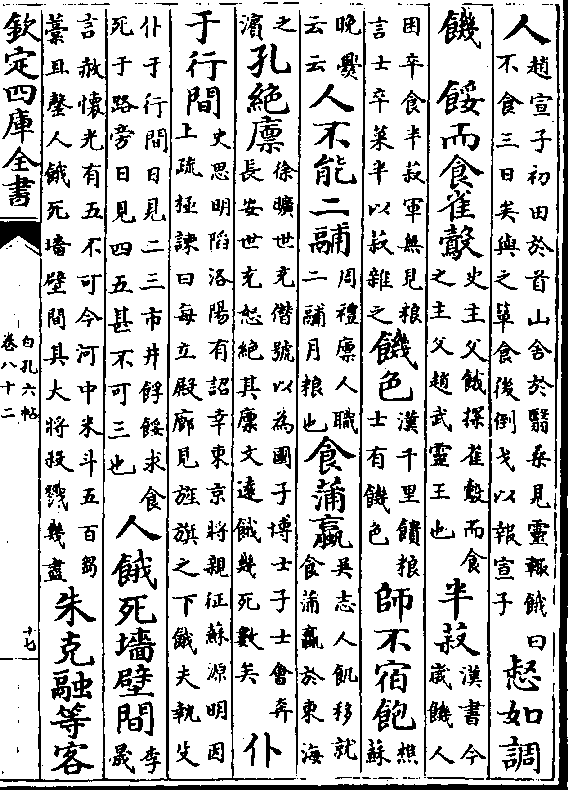 人趙宣子初田於首山舍於翳桑見靈輒餓曰不食三日矣與之簞食後倒戈以報宣子惄如調
饑　餒而食雀鷇史主父餓探雀鷇而食之主父趙武靈王也半菽漢書今歲饑人
困卒食半菽軍無見粮言士卒菜半以菽雜之饑色漢千里饋粮士有饑色師不宿飽樵蘇
晚爨云云人不能二鬴周禮廩人職二鬴月粮也食蒲蠃吳志人飢移就食蒲蠃於東海
之濵孔絶廩徐曠世充僭號以為國子博士子士會奔長安世充怒絶其廩文逺餓幾死數矣仆
于行間史思明陷洛陽有詔幸東京將親征蘇源明因上疏極諫曰每立殿廊見旌旗之下餓夫執殳
仆于行間日見二三市井餒求食死于路旁日見四五甚不可三也人餓死墻壁間李晟
言赦懷光有五不可今河中米斗五百芻藁且罄人餓死墻壁間其大將殺戮幾盡朱克融等客
欽定四庫全書
白孔六帖
卷八十二
十七